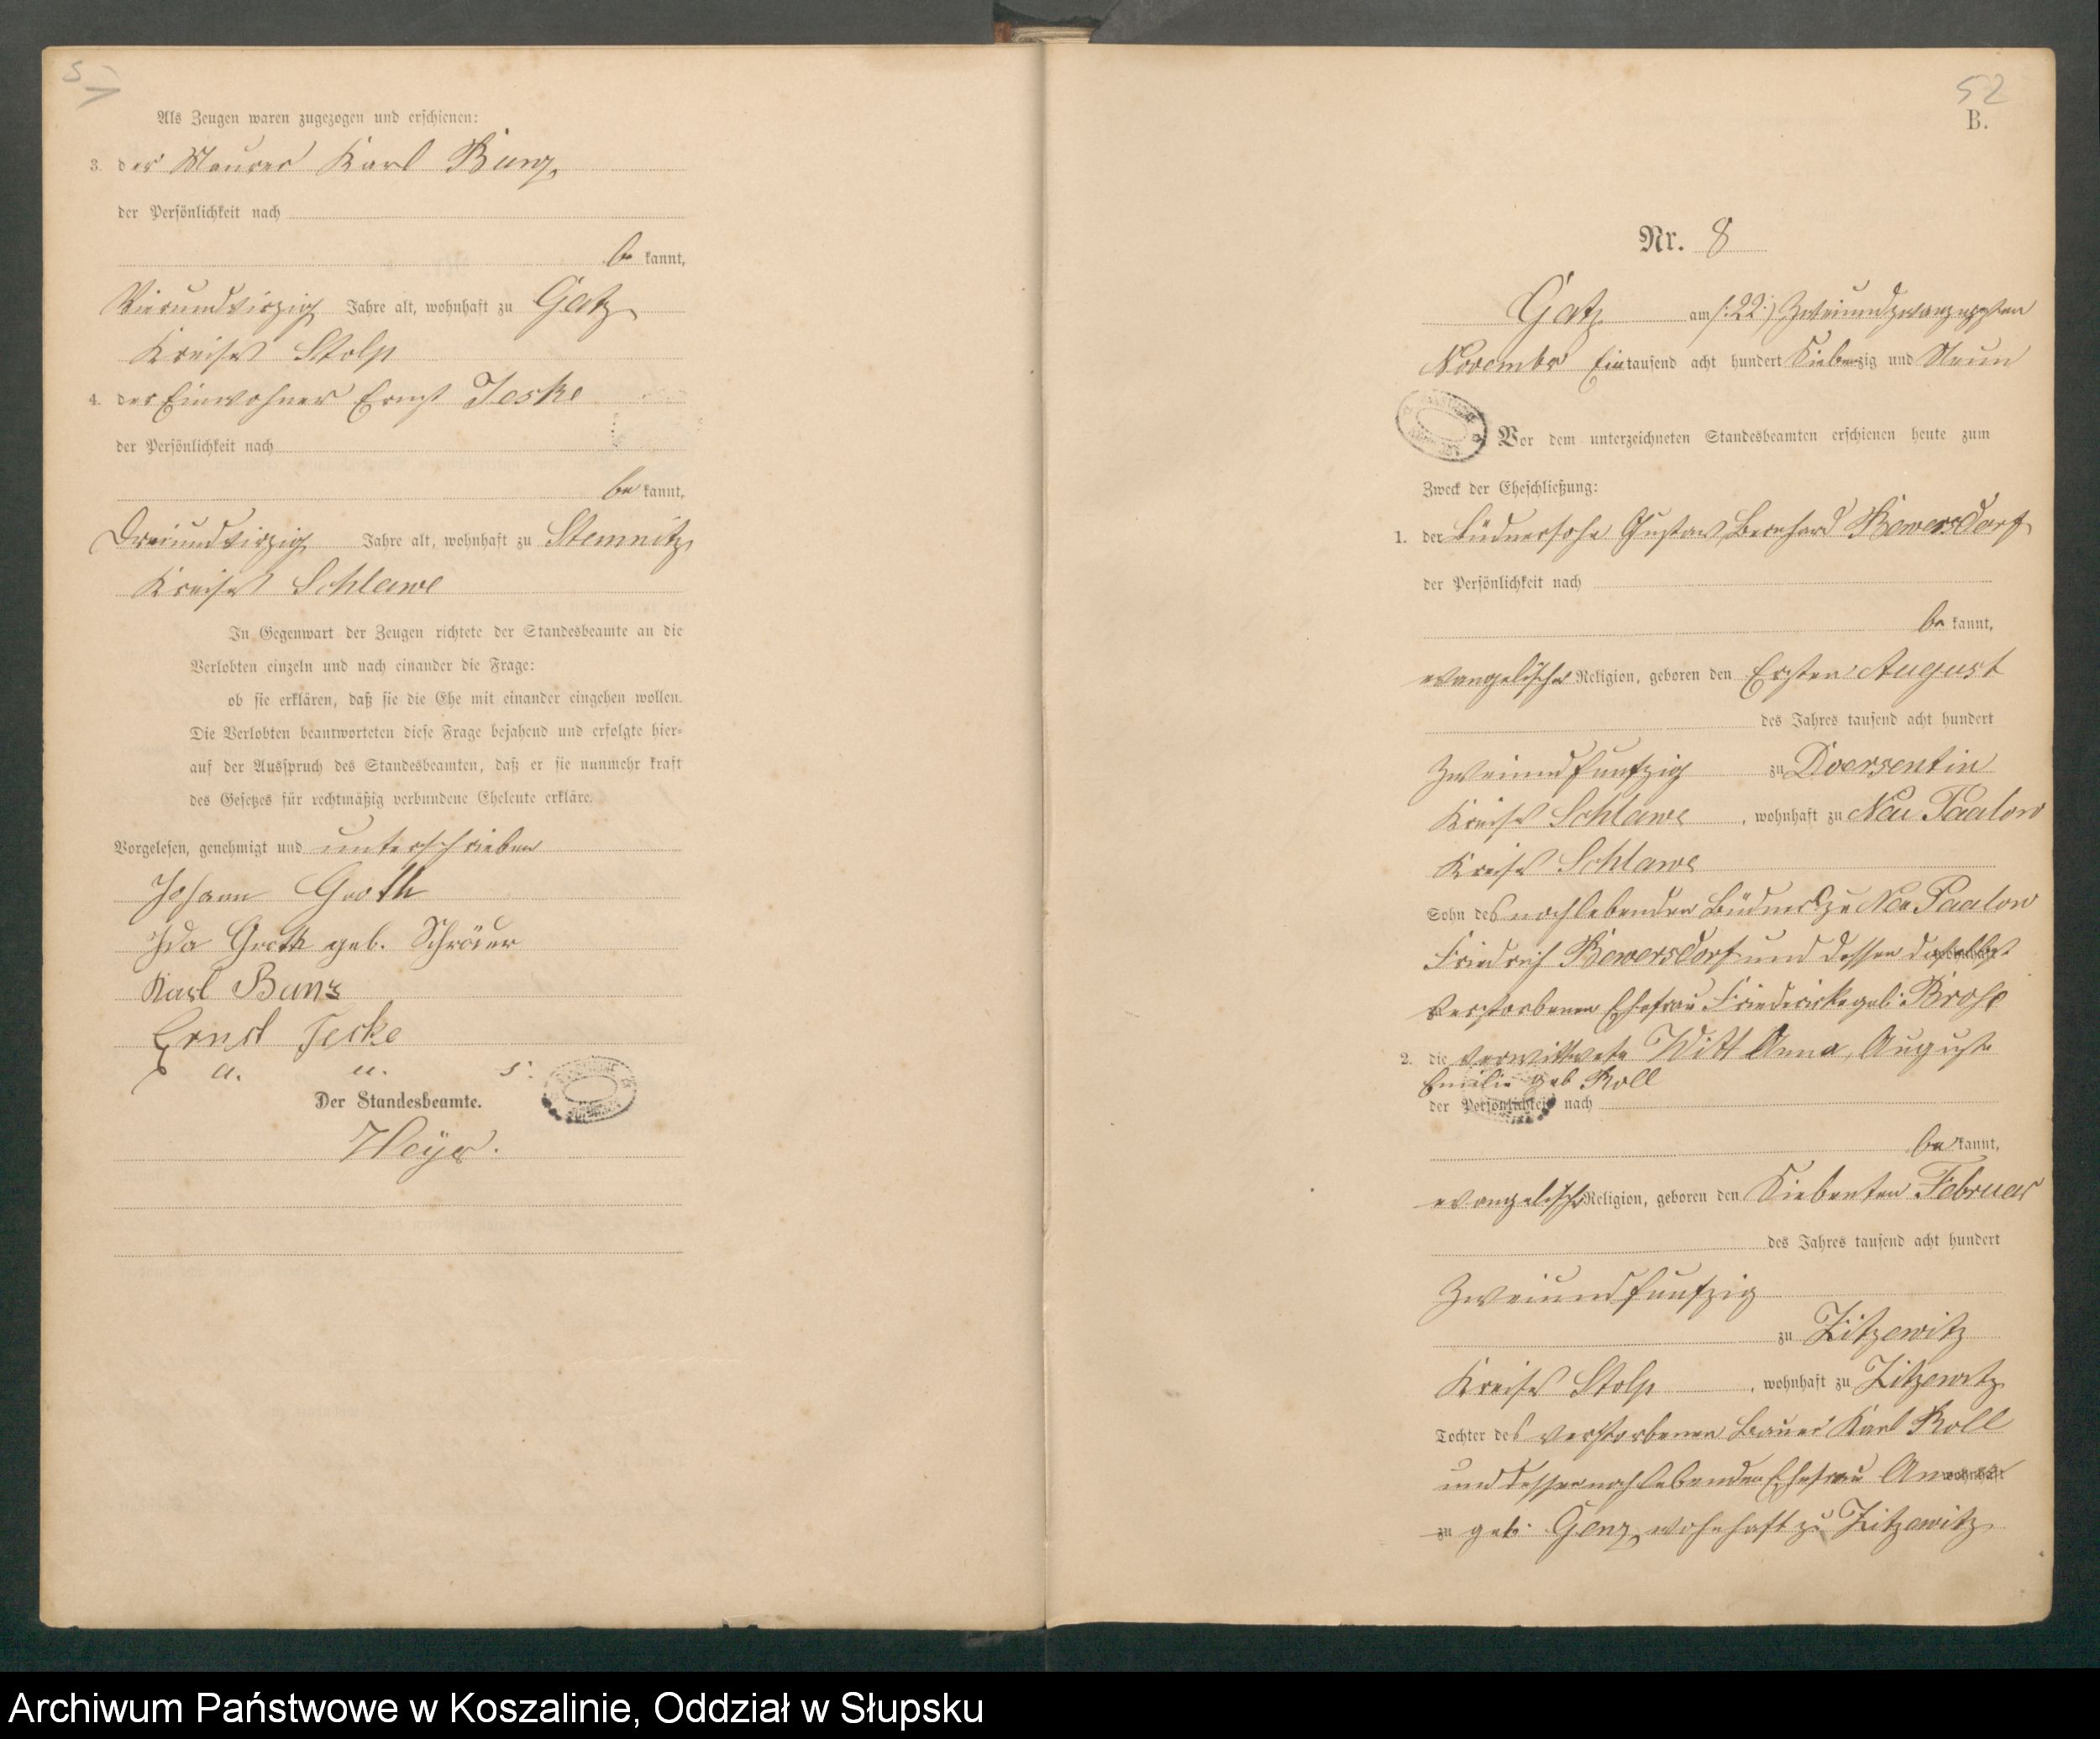 57
Als Zeugen waren zugezogen und erschienen:
3. der Maurer Karl Bunz,
der Persönlichkeit nach
be kannt,
Vierundvirzig Jahre alt, wohnhaft zu Gatz
Kreises Stolp
4. der Einwohner Ernst Jeske
der Persönlichkeit nach
be kannt,
Dreiundvirzig Jahre alt, wohnhaft zu Stemnitz
Kreises Schlawe
In Gegenwart der Zeugen richtete der Standesbeamte an die
Verlobten einzeln und nach einander die Frage:
ob sie erklären, daß sie die Ehe mit einander eingehen wollen.
Die Verlobten beantworteten diese Frage bejahend und erfolgte hier-
auf der Ausspruch des Standesbeamten, daß er sie nunmehr kraft
des Gesetzes für rechtmäßig verbundene Eheleute erkläre.
Vorgelesen, genehmigt und unterschrieben
Johann Groth
Ida Groth geb. Schröder
Karl Bunz
Ernst Jeske
a. u. s.
Der Standesbeamte.
Heyer.
52
B.
Nr. 8
Gatz am /:22:/ Zweiundzwanzigsten
November Ein tausend acht hundert Siebenzig und Neun
Vor dem unterzeichneten Standesbeamten erschienen heute zum
Zweck der Eheschließung:
1. der Büdnersohn Gustav Bernhard Bewersdorf
der Persönlichkeit nach
be kannt,
evangelischer Religion, geboren den Ersten August
des Jahres tausend acht hundert
Zweiundfunfzig zu Doersentin
Kreises Schlawe, wohnhaft zu Neu Paalow
Kreises Schlawe
Sohn des noch lebenden Büdners zu Neu Paalow
Friedrich Bewersdorf und dessen daselbst wohnhaft
verstorbenen Ehefrau Friedericke geb. Brose
2. die verwittwete Witt Anna, Auguste
Emilie geb Roll
der Persönlichkeit nach
be kannt,
evangelischer Religion, geboren den Siebenten Februar
des Jahres tausend acht hundert
Zweiundfunfzig
zu Zitzewitz
Kreises Stolp, wohnhaft zu Zitzewitz
Tochter des verstorbenen Bauer Karl Roll
und dessen noch lebenden Ehefrau wohnhaft
zu geb. Genz, wohnhaft zu Zitzewitz
Archiwum Państwowe w Koszalinie, Oddział w Słupsku